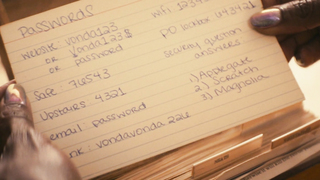 Passwords
website vonda123
or Vonda123$
or password
Safe: 78543
Upstairs 4321
email password
nk: vondavonda 226
wifi 123234
PO Locker 043421
security question
answers
1) Applegate
2) Scratch
3) Magnolia